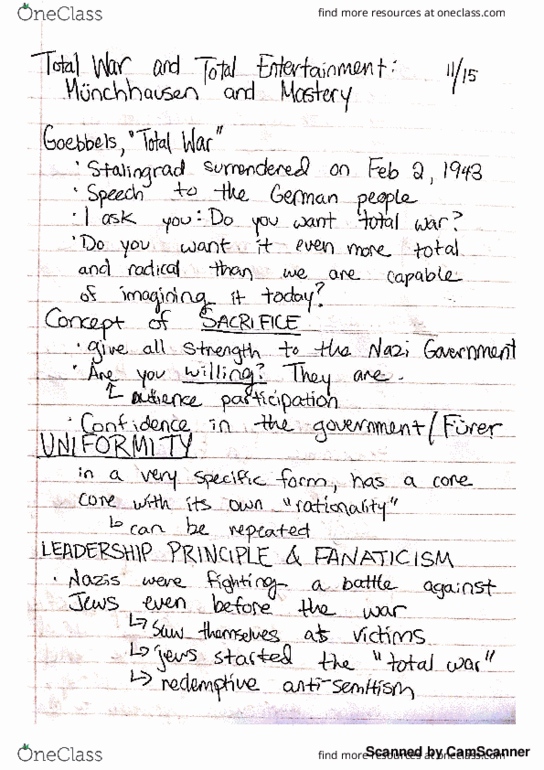 OneClass find more resources at oneclass.com
Total War and Total Entertainment: 11/15
Münchhausen and Mastery
Goebbels, "Total War"
· Stalingrad surrendered on Feb 2, 1943
· Speech to the German people
· I ask you: Do you want total war?
· Do you want it even more total
and radical than we are capable
of imagining it today?
Concept of SACRIFICE
· give all strength to the Nazi Government
· Are you willing? They are.
↳ audience participation
· Confidence in the government/Fürer
UNIFORMITY
in a very specific form, has a core
core with its own "rationality"
↳ can be repeated
LEADERSHIP PRINCIPLE & FANATICISM
· Nazis were fighting a battle against
Jews even before the war
↳ saw themselves as victims
↳ jews started the "total war"
↳ redemptive anti-semitism
OneClass find more resources at oneclass.com
Scanned by CamScanner